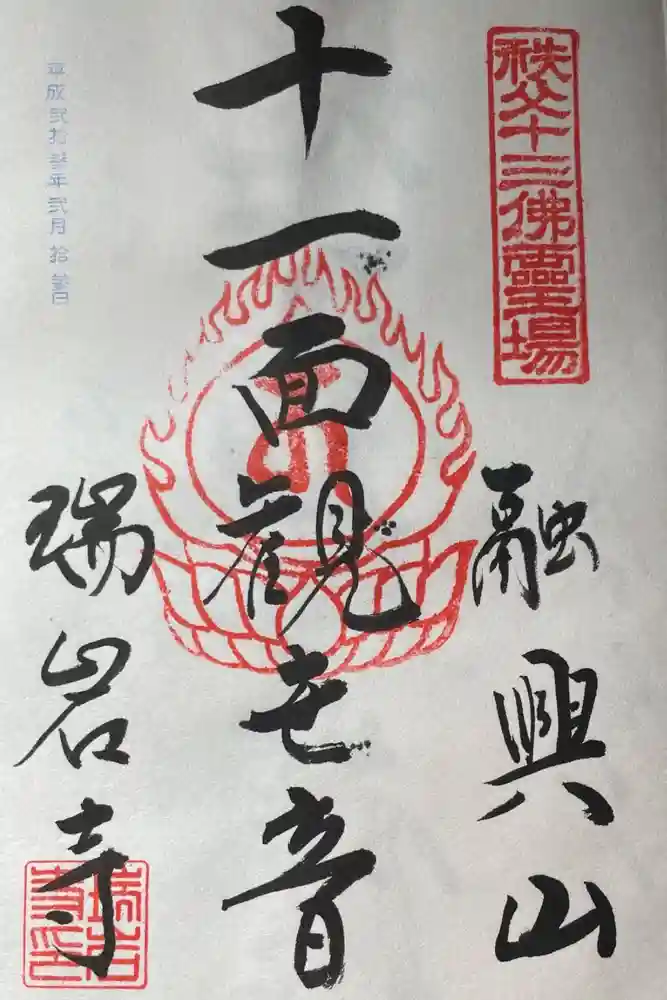 秩父十三佛霊場
融興山
十一面観世音
瑞岩寺
平成弐拾
年弐月拾
瑞岩寺印